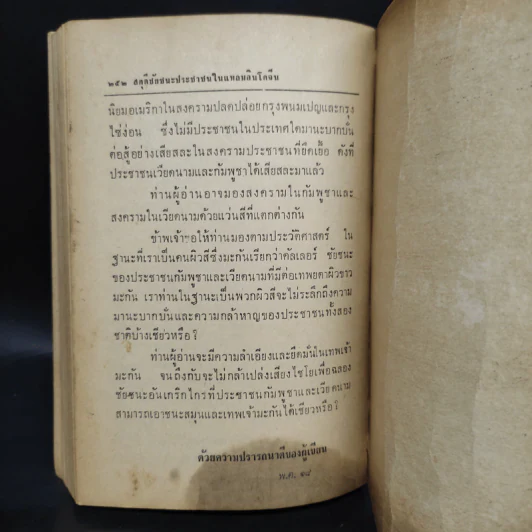 ๒๕๒ สดุดีชัยชนะประชาชนในแหลมอินโดจีน
นิยมอเมริกาในสงครามปลดปล่อยกรุงพนมเปญและกรุง
ไซ่ง่อน ซึ่งไม่มีประชาชนในประเทศใดมานะบากบั่น
ต่อสู้อย่างเสียสละในสงครามประชาชนที่ยืดเยื้อ ดังที่
ประชาชนเวียดนามและกัมพูชาได้เสียสละมาแล้ว
ท่านผู้อ่านอาจมองสงครามในกัมพูชาและ
สงครามในเวียดนามด้วยแว่นสีที่แตกต่างกัน
ข้าพเจ้าขอให้ท่านมองตามประวัติศาสตร์ ใน
ฐานะที่เราเป็นคนผิวสีซึ่งมะกันเรียกว่าคัลเลอร์ ชัยชนะ
ของประชาชนกัมพูชาและเวียดนามที่มีต่อเทพยดาผิวขาว
มะกัน เราท่านในฐานะเป็นพวกผิวสีจะไม่ระลึกถึงความ
มานะบากบั่นและความกล้าหาญของประชาชนทั้งสอง
ชาติบ้างเชียวหรือ ?
ท่านผู้อ่านจะมีความลำเอียงและยึดมั่นในเทพเจ้า
มะกัน จนถึงกับจะไม่กล้าเปล่งเสียงไชโยเพื่อฉลอง
ชัยชนะอันเกริกไกรที่ประชาชนกัมพูชาและเวียดนาม
สามารถเอาชนะสมุนและเทพเจ้ามะกันได้เชียวหรือ ?
ด้วยความปรารถนาดีของผู้เขียน
พ.ค. ๑๘